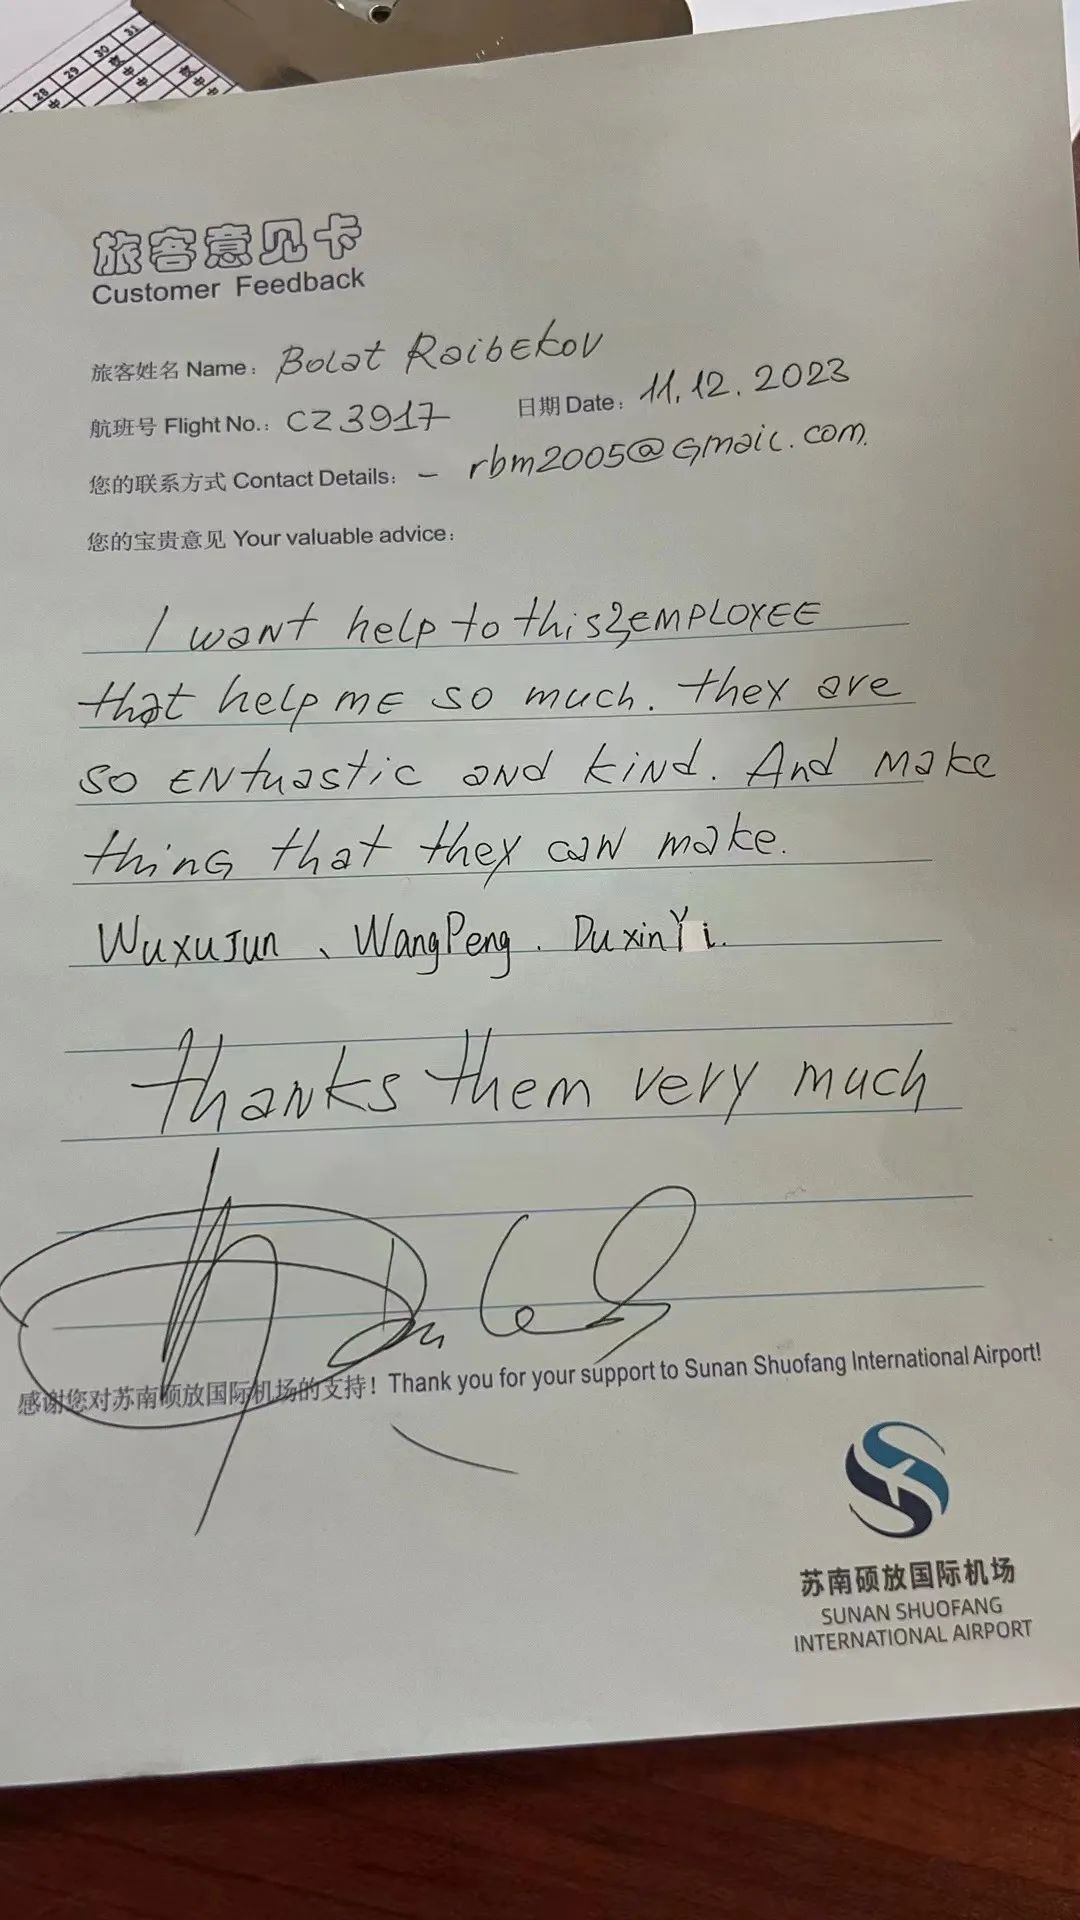 28 29 30 31
旅客意见卡
Customer Feedback
旅客姓名 Name: Bolat Raibekov
航班号 Flight No.: CZ3917 日期 Date: 11.12.2023
您的联系方式 Contact Details: - rbm2005@Gmail.com.
您的宝贵意见 Your valuable advice:
I want help to this EMPLOYEE
that help ME so much. they are
so ENtuastic and kind. And make
thinG that they can make.
WuxuJun、WangPeng. DuxinYi.
thanks them very much
感谢您对苏南硕放国际机场的支持! Thank you for your support to Sunan Shuofang International Airport!
苏南硕放国际机场
SUNAN SHUOFANG
INTERNATIONAL AIRPORT